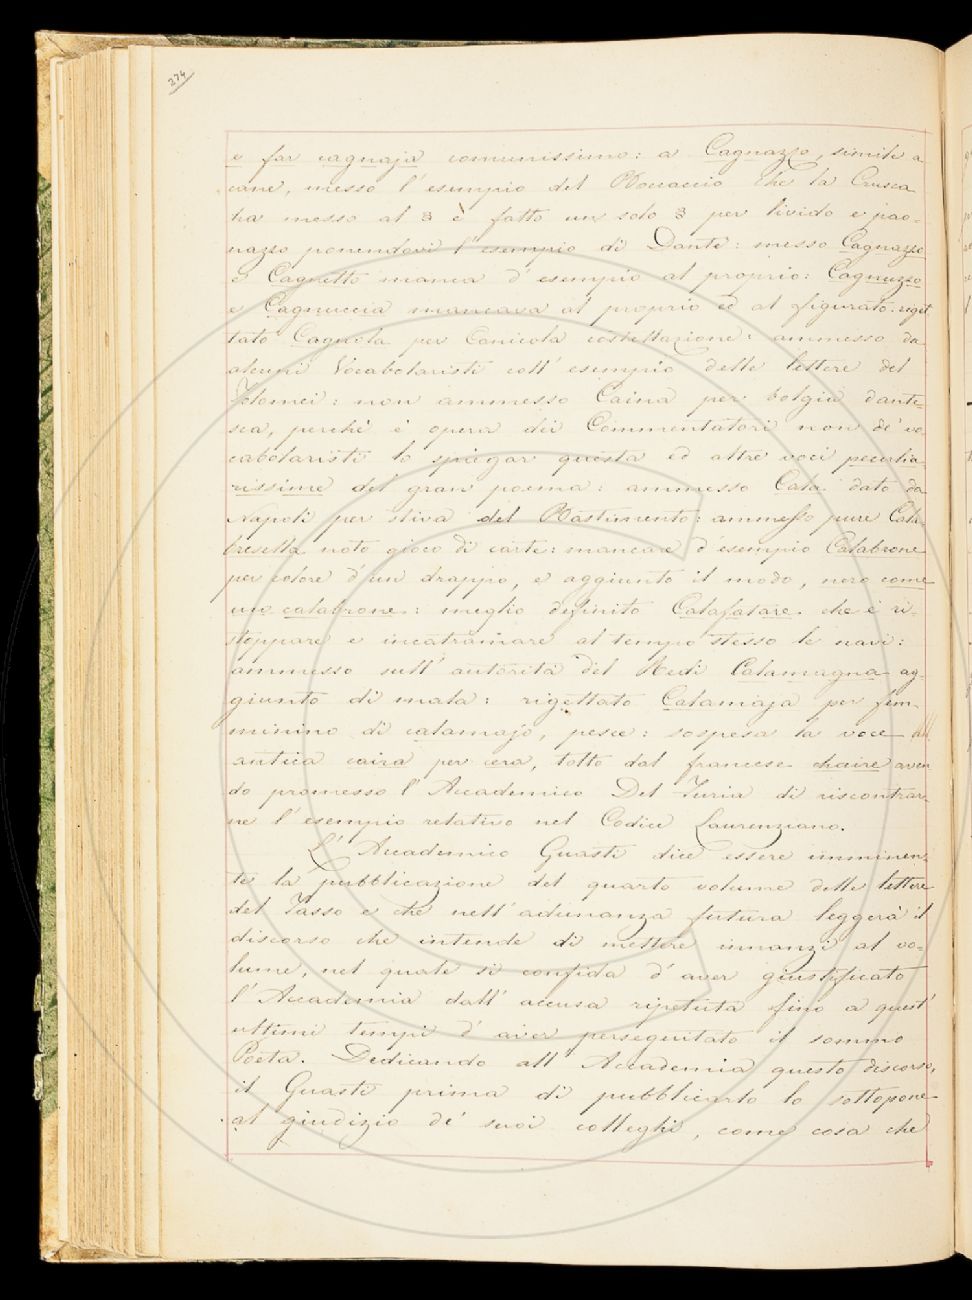 274
e far cagnaja comunissimo: a Cagnazzo, simile a
cane, messo l'esempio del Boccaccio che la Crusca
ha messo al § è fatto un solo § per livido e pao-
nazzo ponendovi l'esempio di Dante: messo Cagnazzo
e Cagnetto manca d'esempio al proprio: Cagnuzzo
e Cagnuccia mancava al proprio ed al figurato: riget
tato Cagnola per Canicola costellazione: ammesso da
alcuni Vocabolaristi coll'esempio delle lettere del
Tolomei: non ammesso Caina per bolgia dante-
sca, perchè è opera dei Commentatori non de' vo-
cabolaristi lo spiegar questa ed altre voci peculia-
rissime del gran poema: ammesso Cala dato da
Napoli per stiva del Bastimento: ammesso pure Cala
bresella noto gioco di carte: mancare d'esempio Calabrone
per colore d'un drappo, e aggiunto il modo, nero come
un calabrone: meglio definito Calafatare che è ri-
stoppare e incatramare al tempo stesso le navi:
ammesso sull'autorità del Redi Calamagna ag-
giunto di mala: rigettato Calamaja per fem-
minino di calamajo, pesce: sospesa la voce
antica caira per cera, tolto dal francese chaire aven
do promesso l'Accademico Del Furia di riscontrar-
ne l'esempio relativo nel Codice Laurenziano.
L'Accademico Guasti dice essere imminen-
te la pubblicazione del quarto volume delle lettere
del Tasso e che nell'adunanza futura leggerà il
discorso che intende di mettere innanzi al vo-
lume, nel quale si confida d'aver giustificato
l'Accademia dall'accusa ripetuta fino a quest'
ultimi tempi d'aver perseguitato il sommo
Poeta. Dedicando all'Accademia questo discorso,
il Guasti prima di pubblicarlo lo sottopone
al giudizio de' suoi colleghi, come cosa che